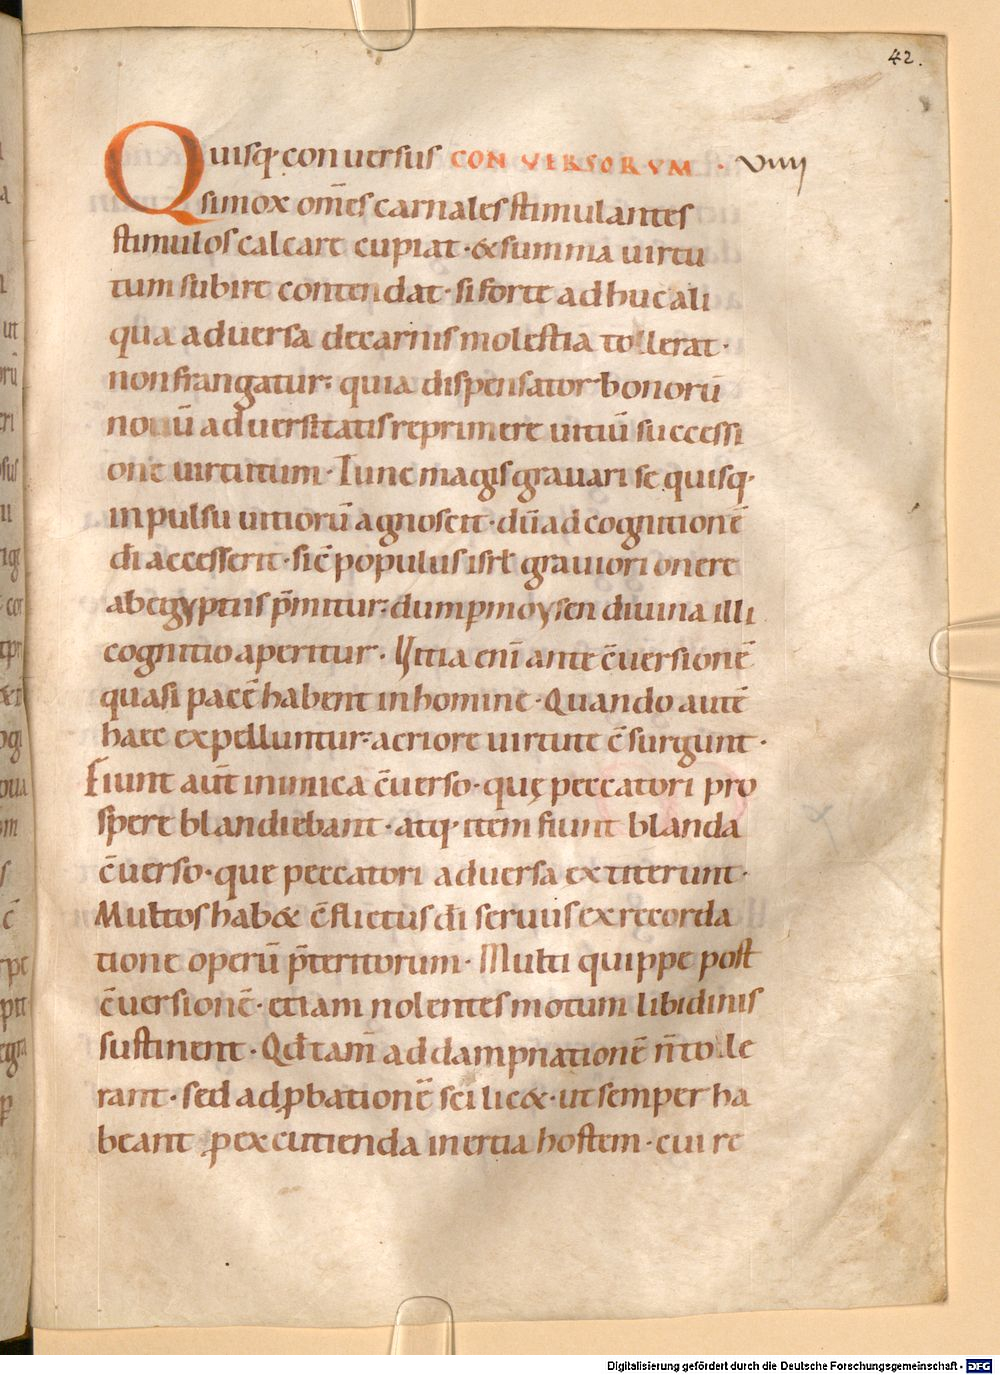 42.
Quisq· conuersus CONVERSORVM · VIIII
si mox om̄es carnales stimulantes
stimulos calcare cupiat · & summa uirtu
tum subire contendat · si forte adhuc ali
qua aduersa de carnis molestia tollerat ·
non frangatur : quia dispensator bonorū
nouū aduersitatis reprimere uitiū successi
one uirtutum · Tunc magis grauari se quisq·
inpulsu uitiorū agnoscit · dū ad cognitionē
dī accesserit · sic̄ populus isrl̄ grauiori onere
ab egyptiis p̄mitur : dum p moysen diuina illi
cognitio aperitur · Uitia enī ante c̄uersionē
quasi pacē habent in homine · Quando autē
haec expelluntur : acriore uirtute c̄surgunt ·
Fiunt aut̄ inimica c̄uerso · quę peccatori pro
spere blandiebant · atq· item fiunt blanda
c̄uerso · que peccatori aduersa extiterunt ·
Multos hab& c̄flictus dī seruus ex recorda
tione operū p̄teritorum · Multi quippe post
c̄uersionē · etiam nolentes motum libidinis
sustinent · Qd̄ tam̄ ad dampnationē n̄ tolle
rant · sed ad ꝓbationē scilic& · ut semper ha
beant ꝓ excutienda inertia hostem · cui re
Digitalisierung gefördert durch die Deutsche Forschungsgemeinschaft - DFG